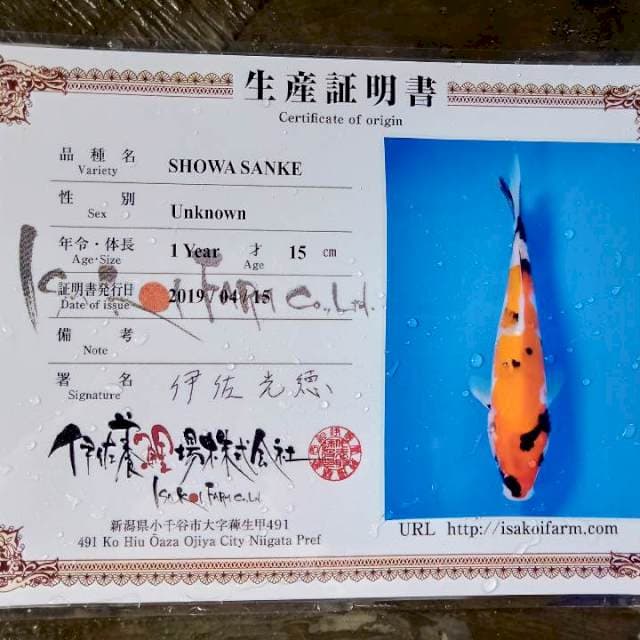 生産証明書
Certificate of origin
品種名
Variety
SHOWA SANKE
性別
Sex
Unknown
年令・体長
Age·Size
1 Year 才 15 ㎝
Age
証明書発行日
Date of issue
2019 / 04 / 15
Isa Koi Farm Co., Ltd.
備考
Note
署名
Signature
伊佐光徳
伊佐養鯉場株式会社
Isa Koi Farm Co., Ltd
新潟県小千谷市大字薭生甲491
491 Ko Hiu Ōaza Ojiya City Niigata Pref
URL http://isakoifarm.com